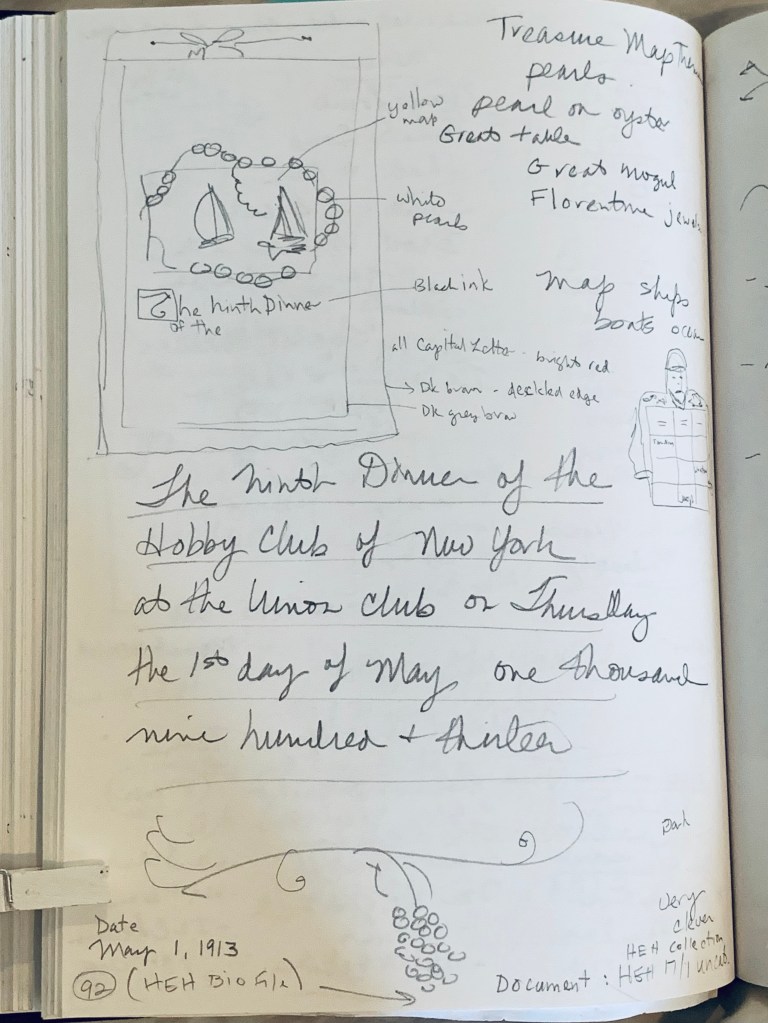 Treasure Map
pearls
pearl on oyster
Great table
Great mogul
Florentine
yellow
map
white
pearls
Black ink
map ships
boats
The Ninth Dinner
of the
all Capital Letter - bright red
Dk brown - deckled edge
Dk grey brow
The Ninth Dinner of the
Hobby Club of New York
at the Union Club on Thursday
the 1st day of May one thousand
nine hundred + thirteen
Dark
Very
clever
HEH collection
Date
May 1, 1913
92 (HEH Bio File)
Document : HEH 17/1